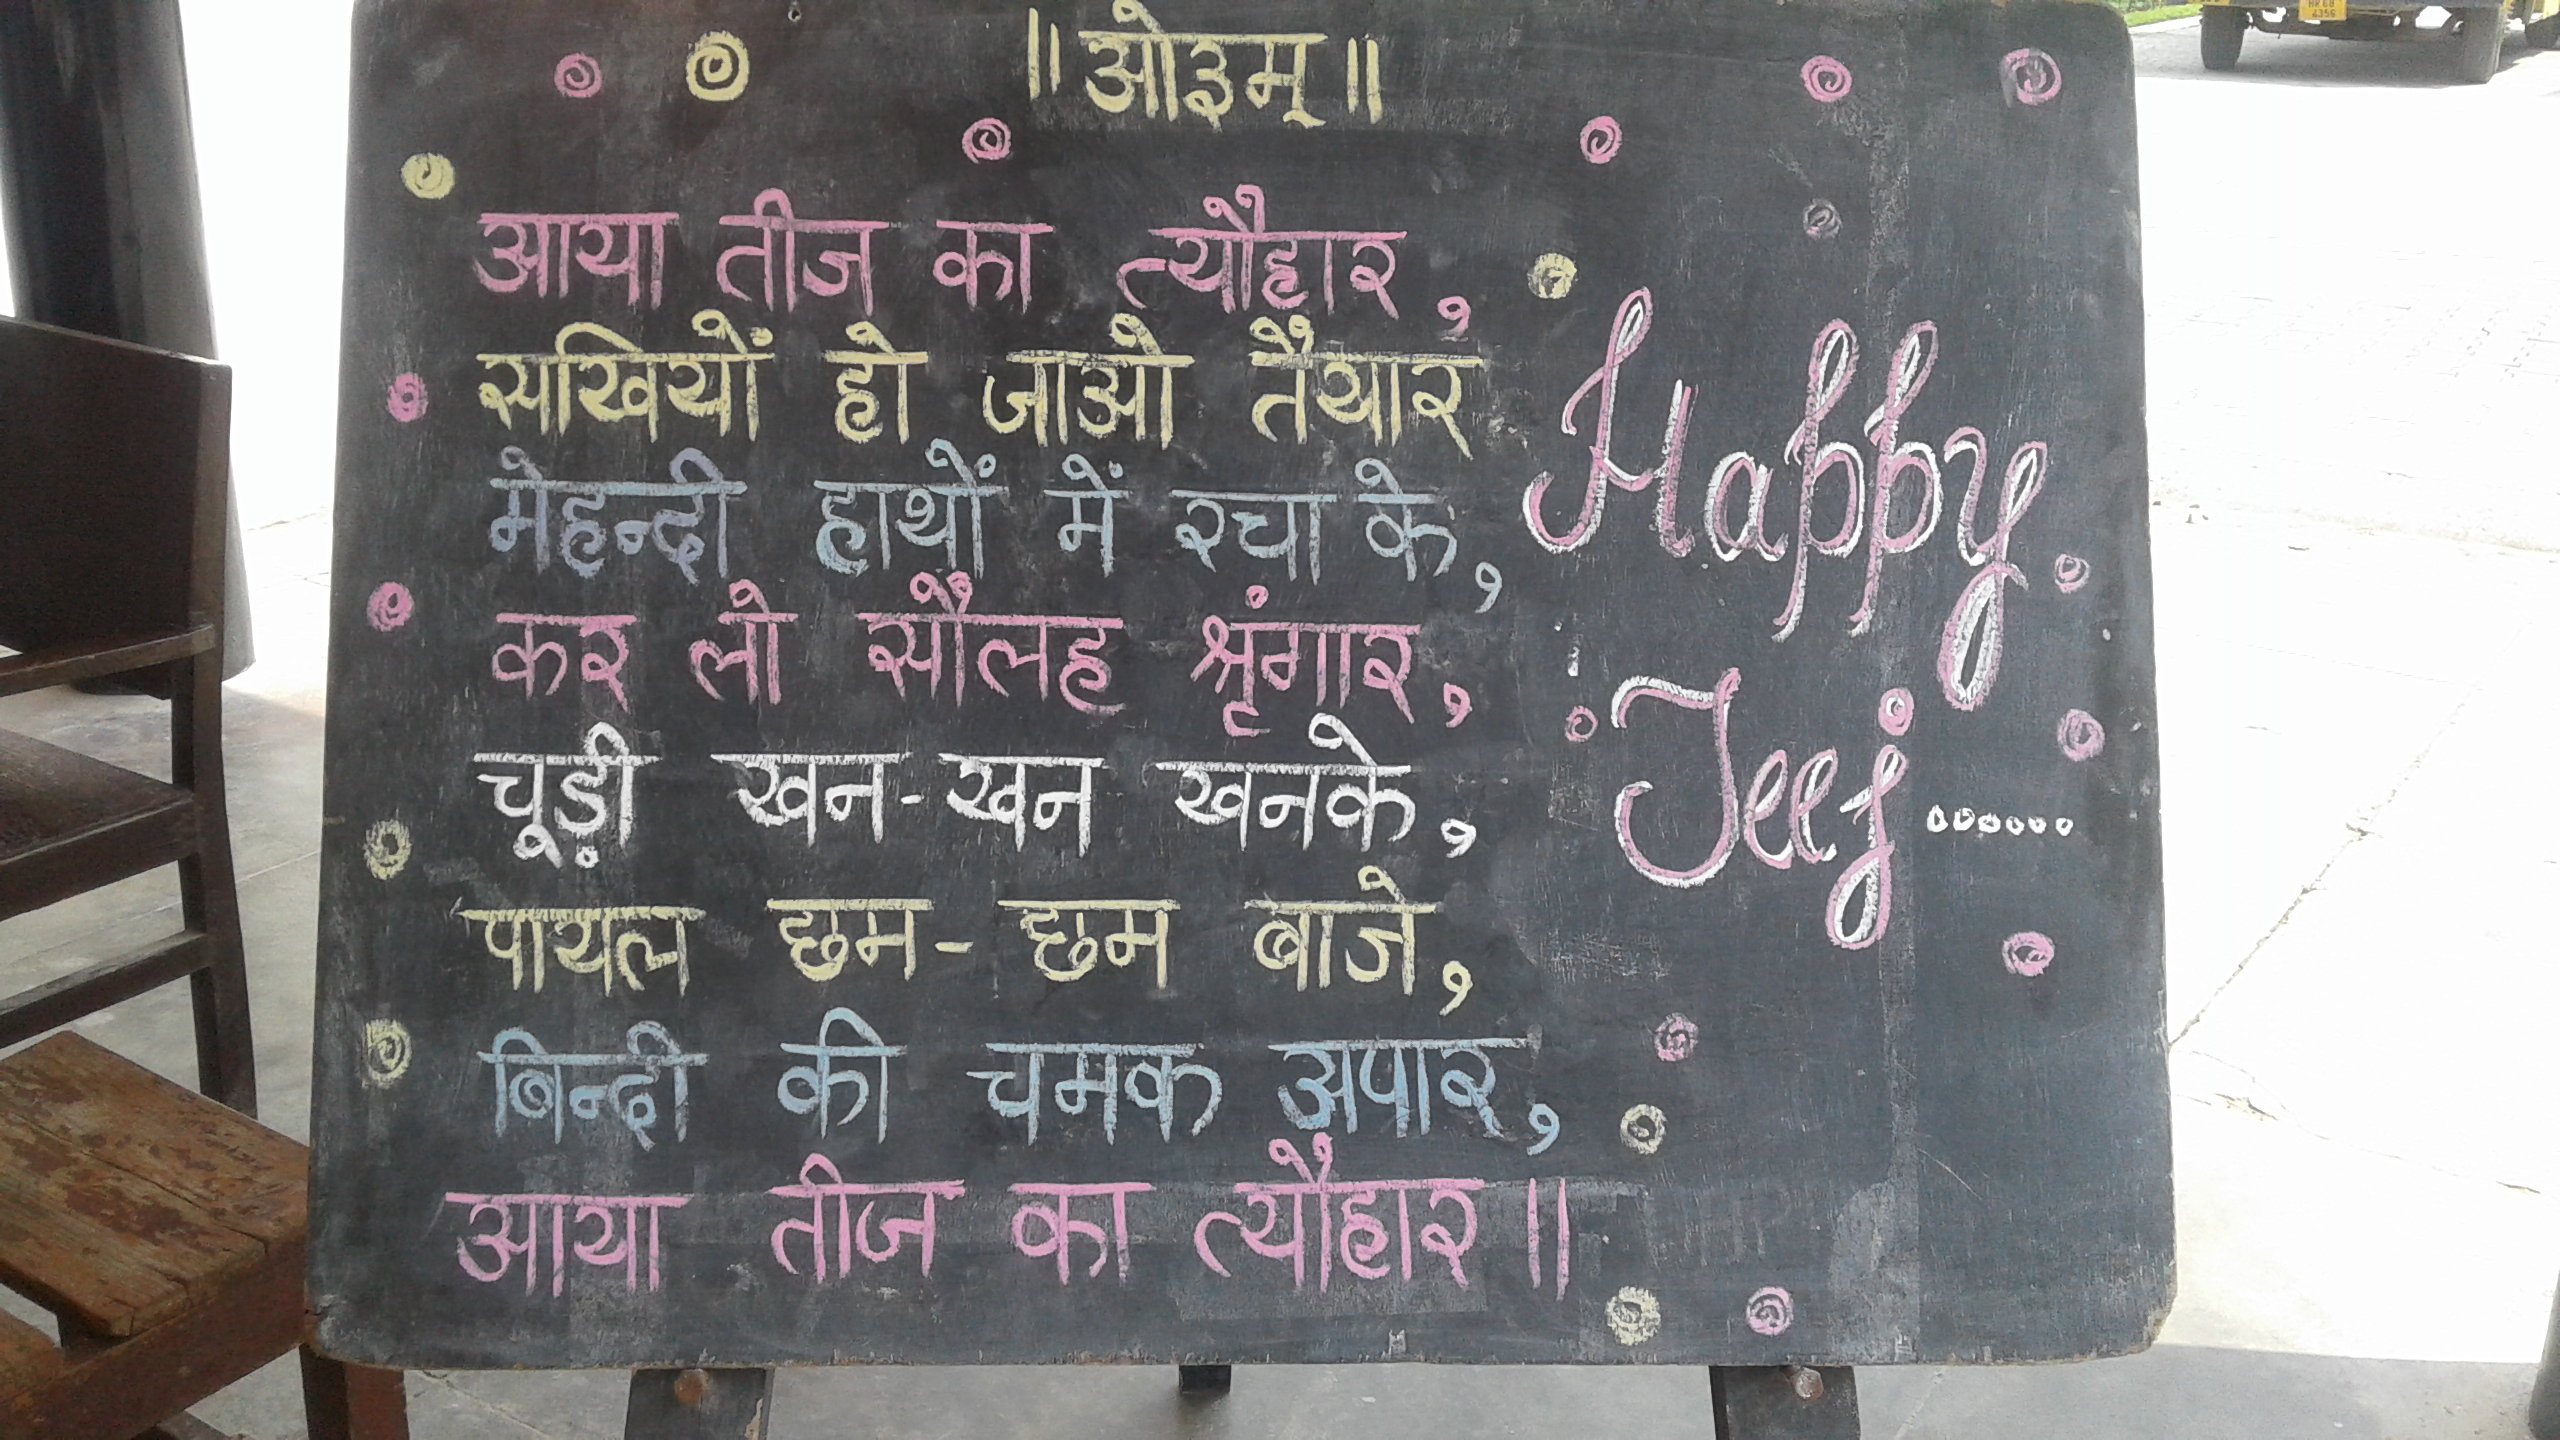 ॥ ओ३म् ॥
आया तीज का त्यौहार,
सखियों हो जाओ तैयार
मेहन्दी हाथों में रचा के,
कर लो सौलह श्रृंगार,
चूड़ी खन-खन खनके,
पायल छम-छम बाजे,
बिन्दी की चमक अपार,
आया तीज का त्यौहार ॥
Happy
Teej......